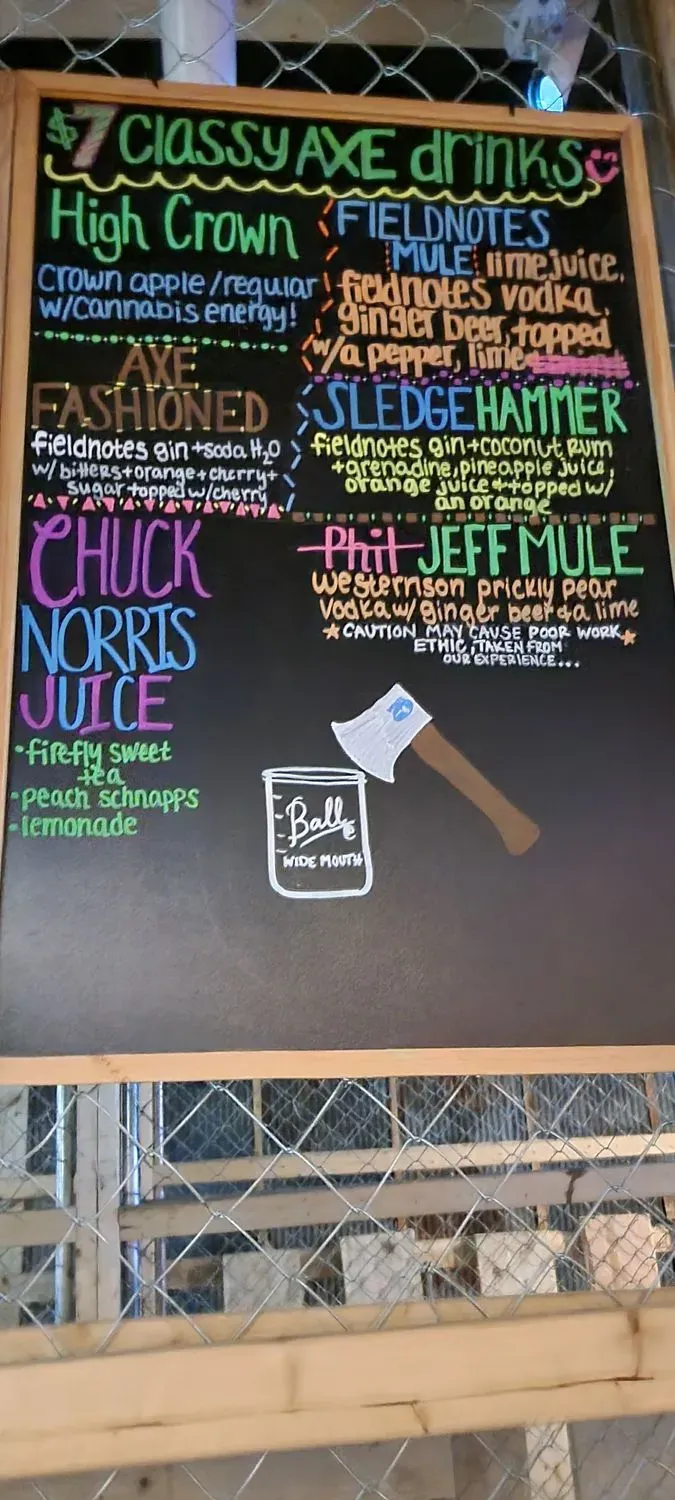 $7 Classy AXE drinks
High Crown
Crown apple/regular
w/Cannabis energy!
AXE
FASHIONED
fieldnotes gin+soda H₂O
w/bitters+orange+cherry+
sugar topped w/cherry
CHUCK
NORRIS
JUICE
•firefly sweet
tea
•peach schnapps
•lemonade
FIELDNOTES
MULE limejuice,
fieldnotes vodka,
ginger beer, topped
w/a pepper, lime
SLEDGEHAMMER
fieldnotes gin+coconut Rum
+grenadine, pineapple juice,
orange juice + topped w/
an orange
Phil JEFF MULE
westernson prickly pear
vodka w/ ginger beer + a lime
CAUTION MAY CAUSE POOR WORK
ETHIC, TAKEN FROM
OUR EXPERIENCE...
Ball
WIDE MOUTH